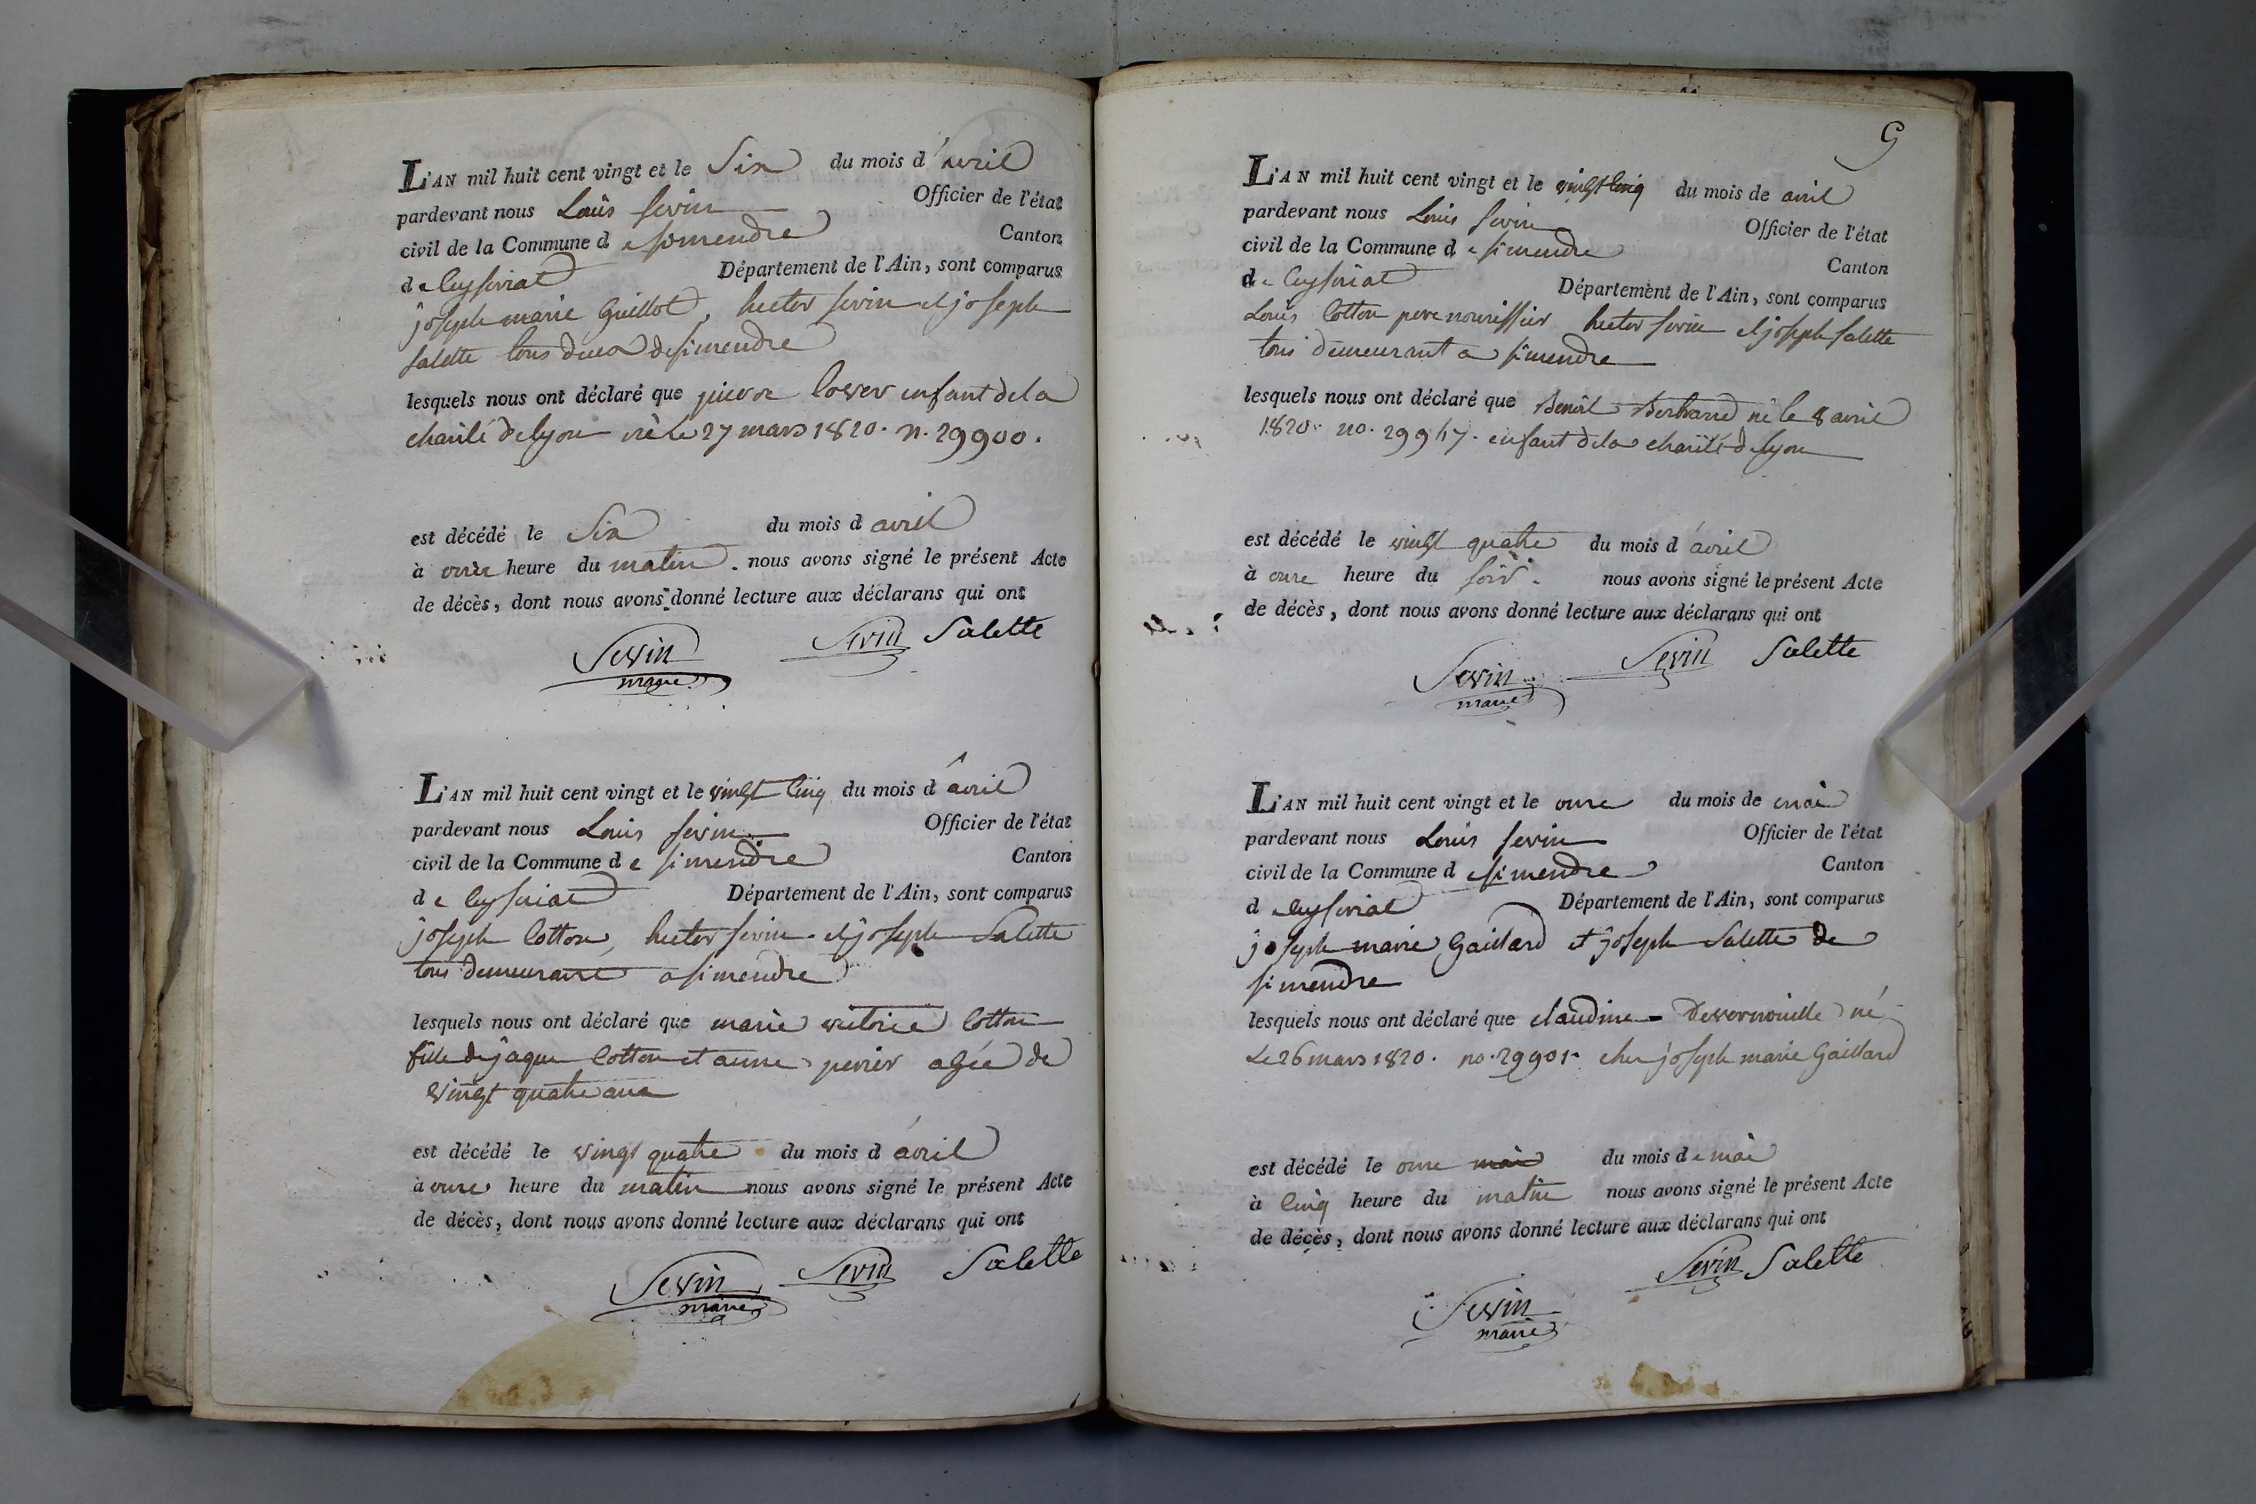 L'AN mil huit cent vingt et le Six du mois d'avril
pardevant nous Louis Sevin Officier de l'état
civil de la Commune de Simendre Canton
de Ceyseriat Département de l'Ain, sont comparus
joseph marie Guillot, hector sevin et joseph
salette tous de Simendre
lesquels nous ont déclaré que enfant de la
charité de lyon né le 27 mars 1820. n. 29900.
est décédé le Six du mois d avril
à onze heure du matin. nous avons signé le présent Acte
de décès, dont nous avons donné lecture aux déclarans qui ont
Sevin Sevin Salette
maire
L'AN mil huit cent vingt et le vingt cinq du mois d avril
pardevant nous Louis Sevin Officier de l'état
civil de la Commune de Simendre Canton
de Ceyseriat Département de l'Ain, sont comparus
joseph Cotton, hector sevin et joseph Salette
tous demeurant a Simendre
lesquels nous ont déclaré que marie victoire Cotton
fille de jaque Cotton et anne perier agée de
vingt quatre ans
est décédé le vingt quatre du mois d avril
à onze heure du matin nous avons signé le présent Acte
de décès, dont nous avons donné lecture aux déclarans qui ont
Sevin Sevin Salette
maire
9
L'AN mil huit cent vingt et le vingt cinq du mois de avril
pardevant nous Louis Sevin Officier de l'état
civil de la Commune de Simendre Canton
de Ceyseriat Département de l'Ain, sont comparus
Louis Cotton pere nourissier hector sevin et joseph salette
tous demeurant a Simendre
lesquels nous ont déclaré que Benoit Bertrand né le 8 avril
1820. no. 29947. enfant de la charité de lyon
est décédé le vingt quatre du mois d avril
à onze heure du soir. nous avons signé le présent Acte
de décès, dont nous avons donné lecture aux déclarans qui ont
Sevin Sevin Salette
maire
L'AN mil huit cent vingt et le onze du mois de mai
pardevant nous Louis Sevin Officier de l'état
civil de la Commune de Simendre Canton
de Ceyseriat Département de l'Ain, sont comparus
joseph marie Gaillard et joseph Salette de
Simendre
lesquels nous ont déclaré que claudine Devernouille né
Le 26 mars 1820. no. 29901. chez joseph marie Gaillard
est décédé le onze mai du mois de mai
à Cinq heure du matin nous avons signé le présent Acte
de décès, dont nous avons donné lecture aux déclarans qui ont
Sevin Sevin Salette
maire